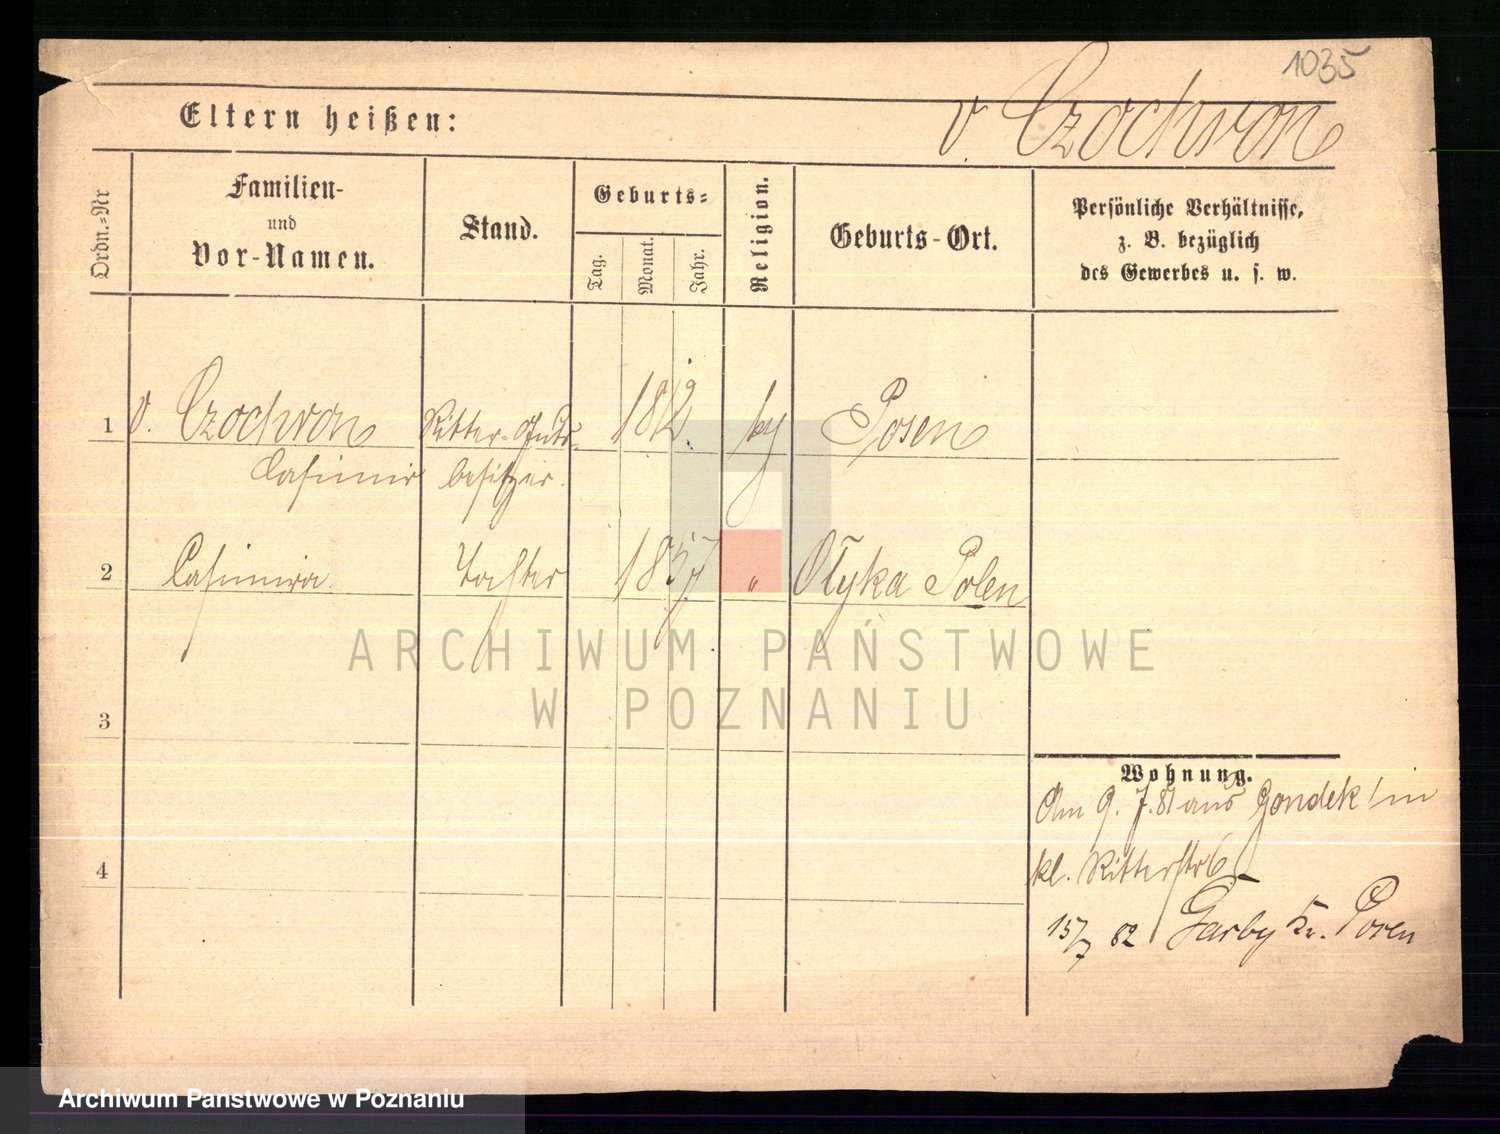 1035
Eltern heißen:
v. Czochron
Ordn.-Nr
Familien-
und
Vor-Namen.
Stand.
Geburts-
Tag.
Monat.
Jahr.
Religion.
Geburts-Ort.
Persönliche Verhältnisse,
z. B. bezüglich
des Gewerbes u. s. w.
1 v. Czochron Ritter-Guts- 1812 Posen
Casimir besitzer.
2 Casimira Tochter 1857 " Olyka Polen
3
4
Wohnung.
Am 9. 7. 81 aus Gondek in
kl. Ritterstr 6
15/7 82 Garby Kr. Posen
ARCHIWUM PAŃSTWOWE
W POZNANIU
Archiwum Państwowe w Poznaniu